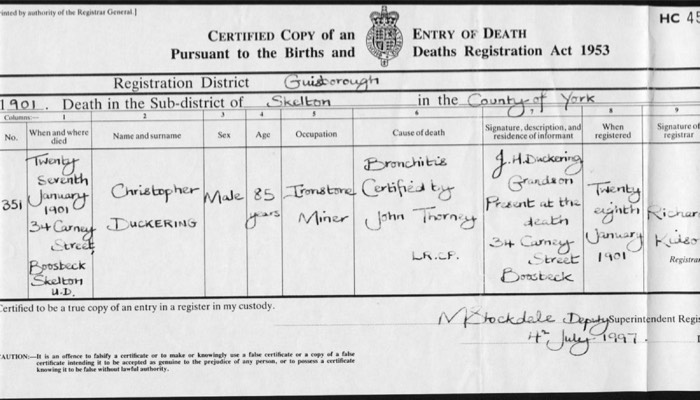 rinted by authority of the Registrar General.]
HC 45
CERTIFIED COPY of an ENTRY OF DEATH
Pursuant to the Births and Deaths Registration Act 1953
Registration District Guisborough
1901. Death in the Sub-district of Skelton in the County of York
Columns:— 1 2 3 4 5 6 7 8 9
No. When and where died Name and surname Sex Age Occupation Cause of death Signature, description, and residence of informant When registered Signature of registrar
351
Twenty
Seventh
January
1901
34 Carney
Street
Boosbeck
Skelton
U.D.
Christopher
DUCKERING
Male
85
years
Ironstone
Miner
Bronchitis
Certified by
John Thorney
L.R.C.P.
J.H. Duckering
Grandson
Present at the
death
34 Carney
Street
Boosbeck
Twenty
eighth
January
1901
Richar
Registrar
Certified to be a true copy of an entry in a register in my custody.
Stockdale Deputy Superintendent Regis
4th July 1997.
CAUTION:—It is an offence to falsify a certificate or to make or knowingly use a false certificate or a copy of a false
certificate intending it to be accepted as genuine to the prejudice of any person, or to possess a certificate
knowing it to be false without lawful authority.